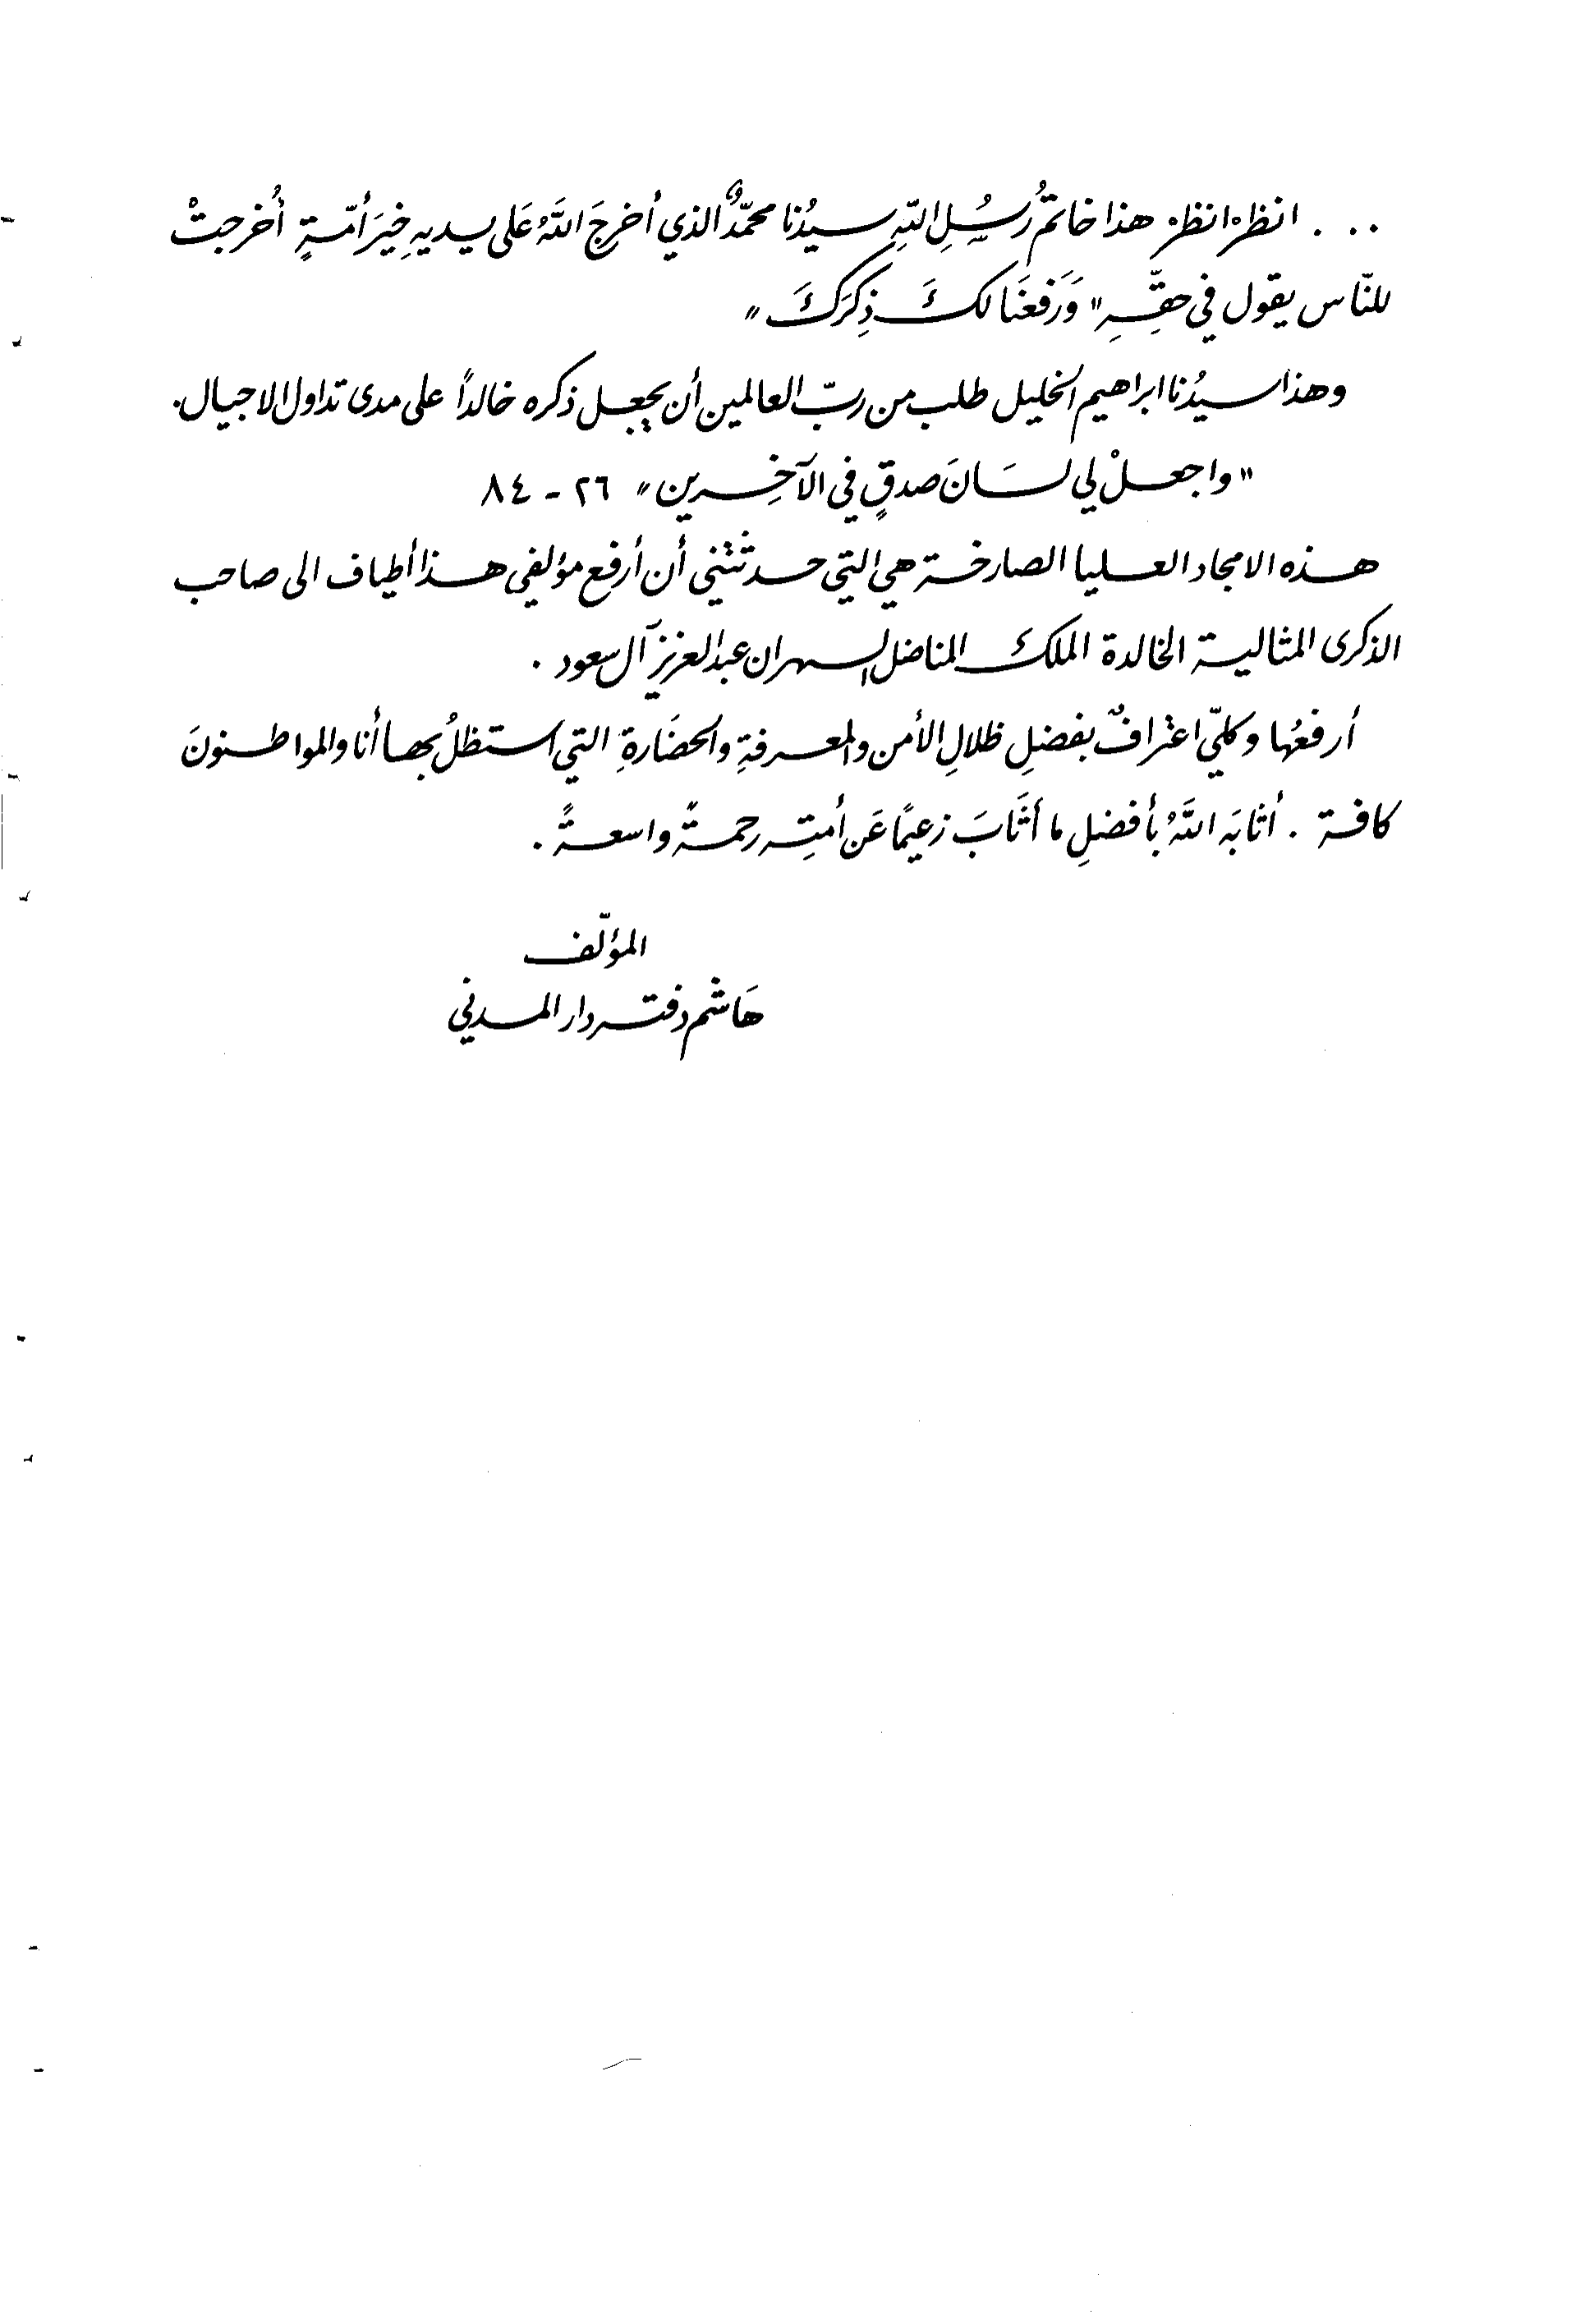 ... انظرْ انظرْ هذا خاتمُ رُسُلِ اللهِ سيدُنا محمّدٌ الذي أخرجَ اللهُ عَلى يديهِ خيرَ أمّةٍ أُخرجتْ
للنّاس يقول في حقِّهِ " وَرَفعَنَا لكَ ذِكرَكَ "
وهذا سيدُنا ابراهيم الخليل طلب من ربّ العالمين أن يجعل ذكره خالداً على مدى تداول الاجيال.
" واجعلْ لي لسَانَ صدقٍ في الآخِرين " ٢٦ - ٨٤
هذه الامجاد العليا الصارخة هي التي حدثتني أن أرفع مؤلفي هذا أطياف الى صاحب
الذكرى المثالية الخالدة الملك المناضل السهران عبدالعزيز آل سعود .
أرفعُها وكلّي اعترافٌ بفضلِ ظلالِ الأمن والمعرفةِ والحضَارةِ التي استظلُ بها أنا والمواطنونَ
كافة . أثابَه اللهُ بأفضلِ ما أثَابَ زعيمًا عَن أمتِه رحمةً واسعةً .
المؤلّف
هَاشم دفتردار المدني